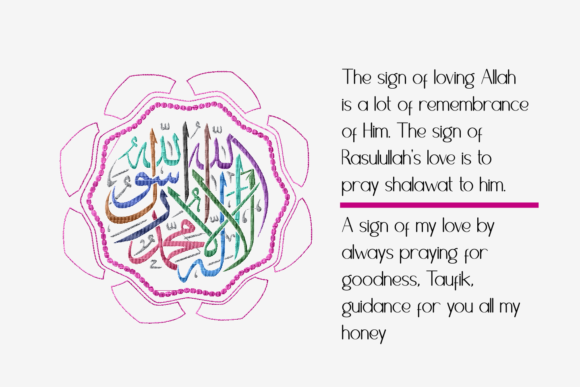 لا إله إلا الله محمد رسول الله
The sign of loving Allah
is a lot of remembrance
of Him. The sign of
Rasulullah's love is to
pray shalawat to him.
A sign of my love by
always praying for
goodness, Taufik,
guidance for you all my
honey